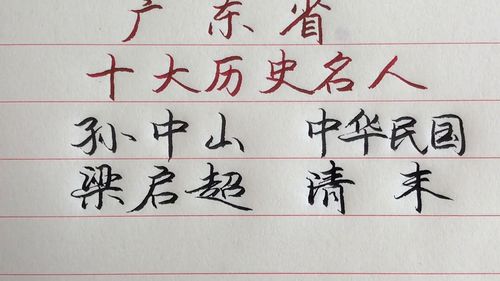 广东省
十大历史名人
孙中山 中华民国
梁启超 清末